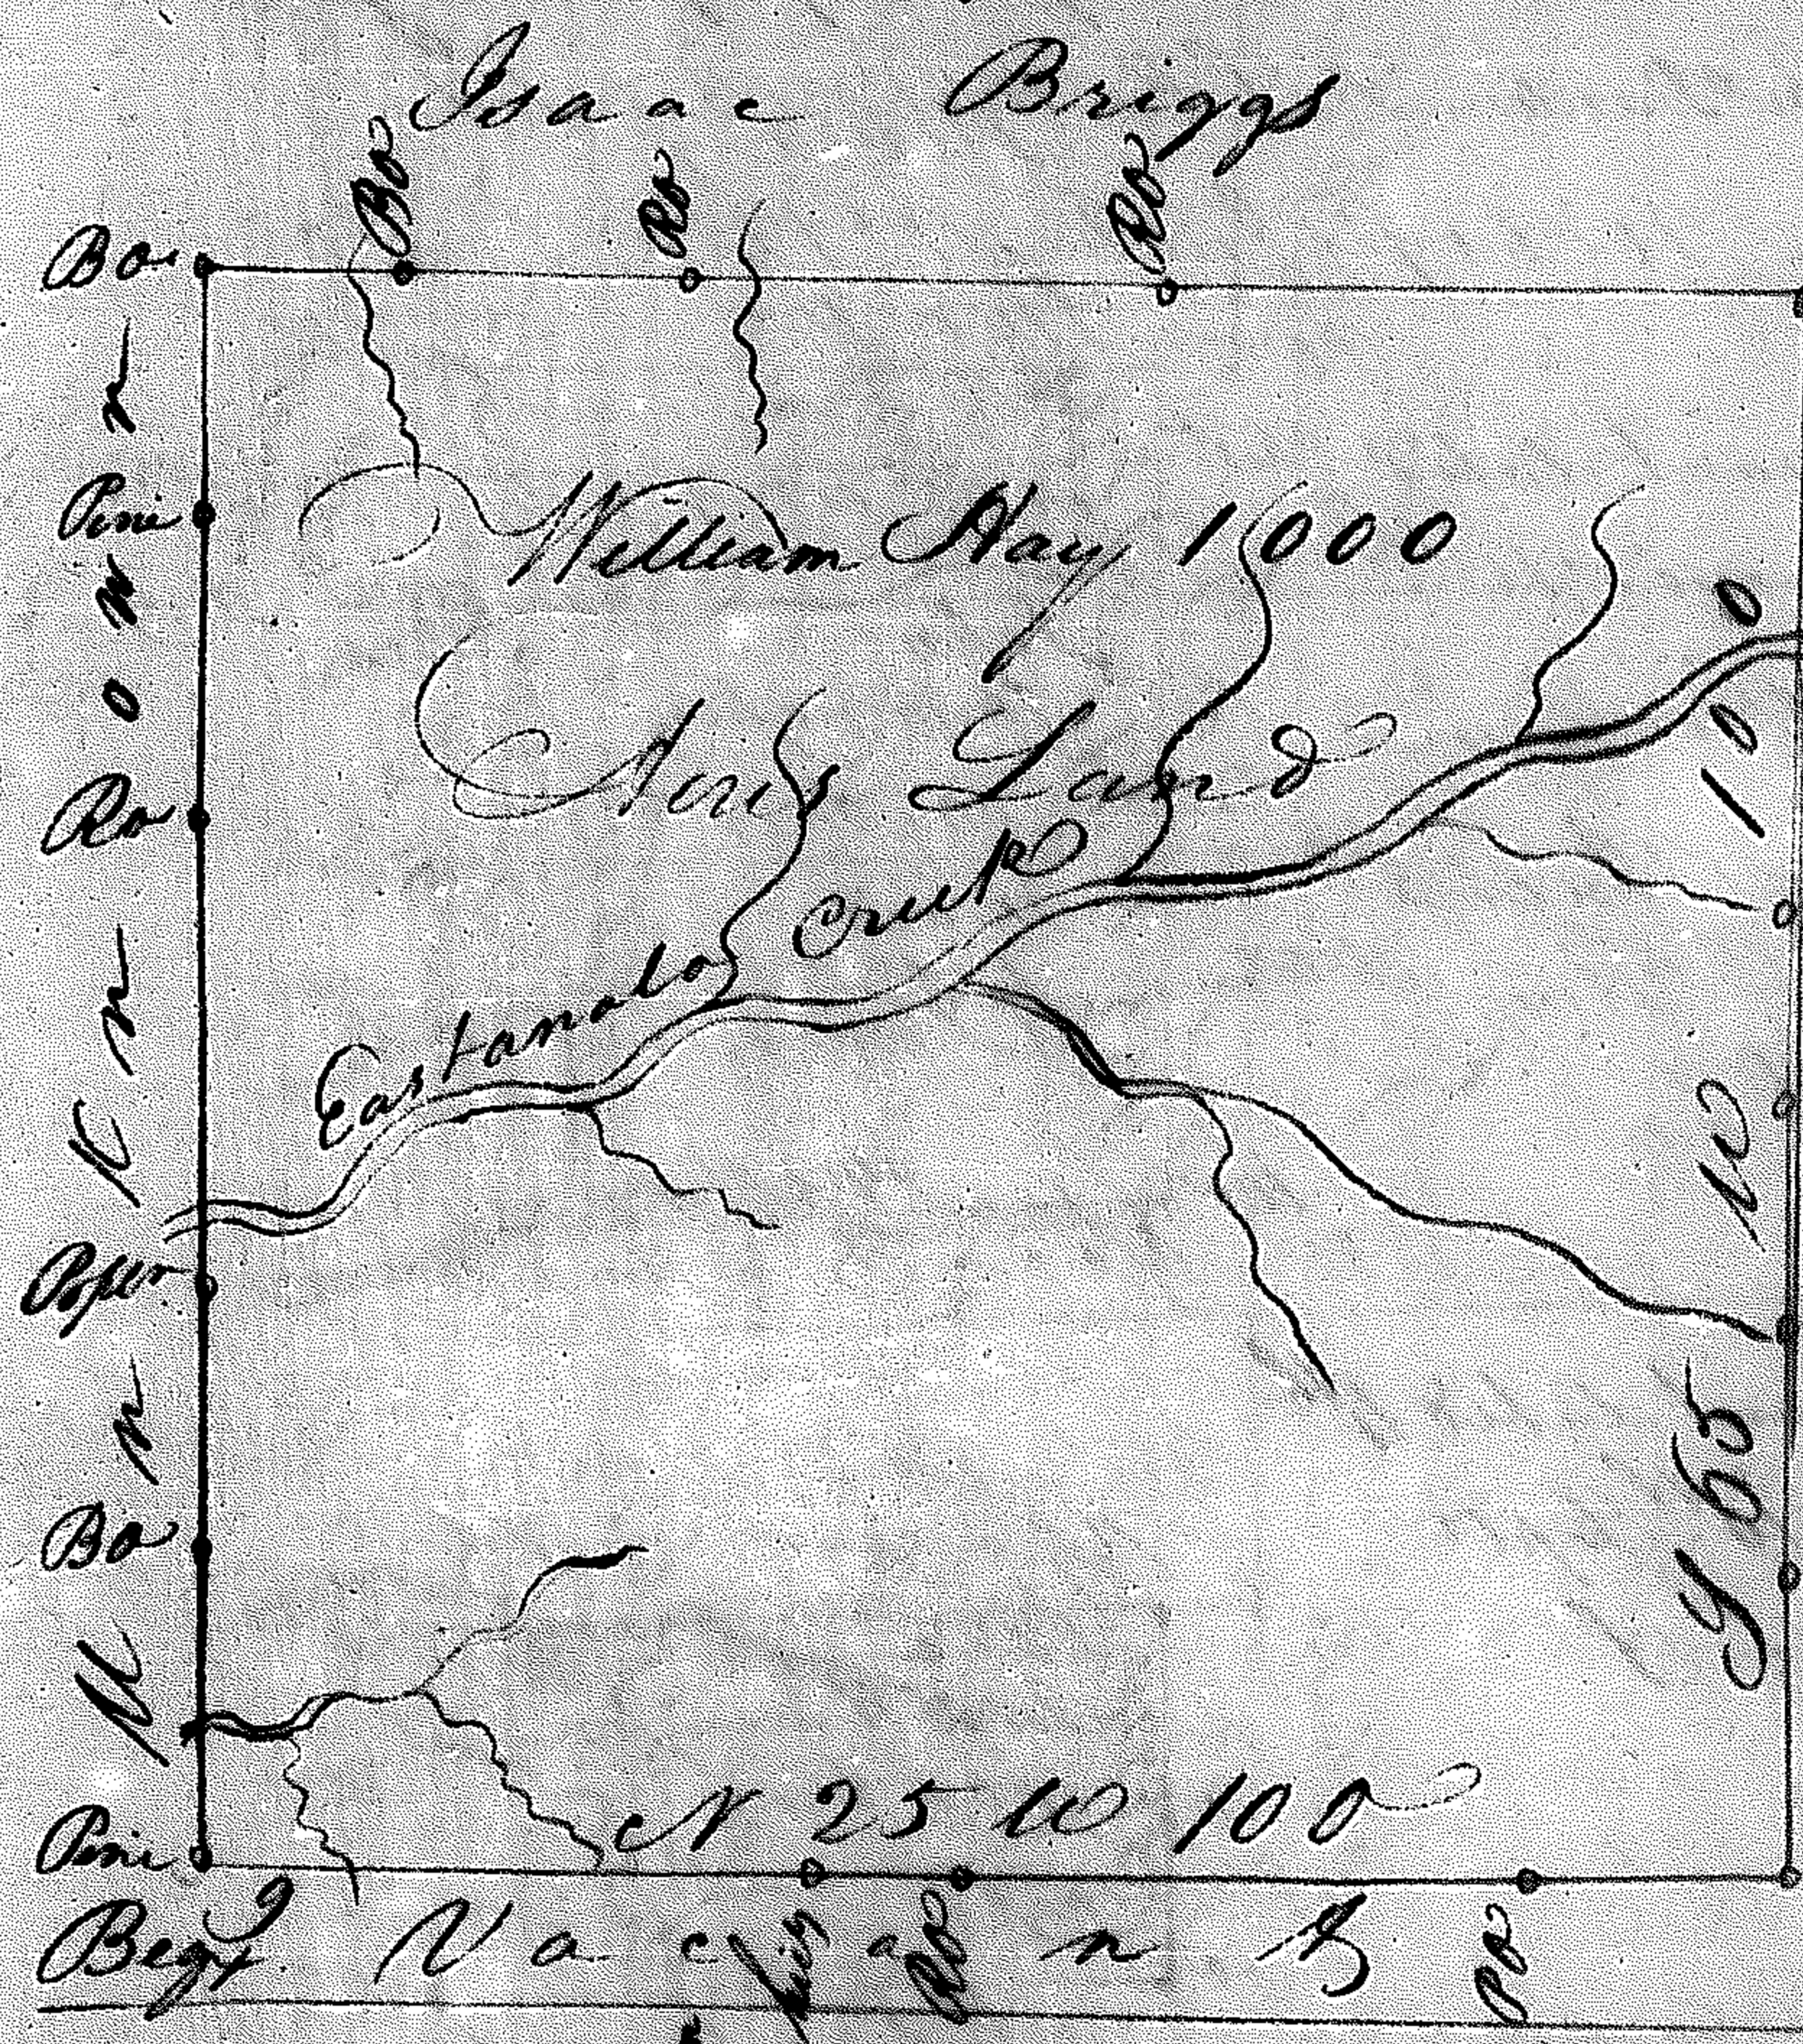 Isaac Briggs
Bo
Ro
Ro
Bo
Pine
Ro
Poplr
Bo
Pine
Unknown
William Hay 1000
Acres Land
Eastanalo Creek
S 65 W 100
N 25 W 100
Begg
Vacant
Ro
Po